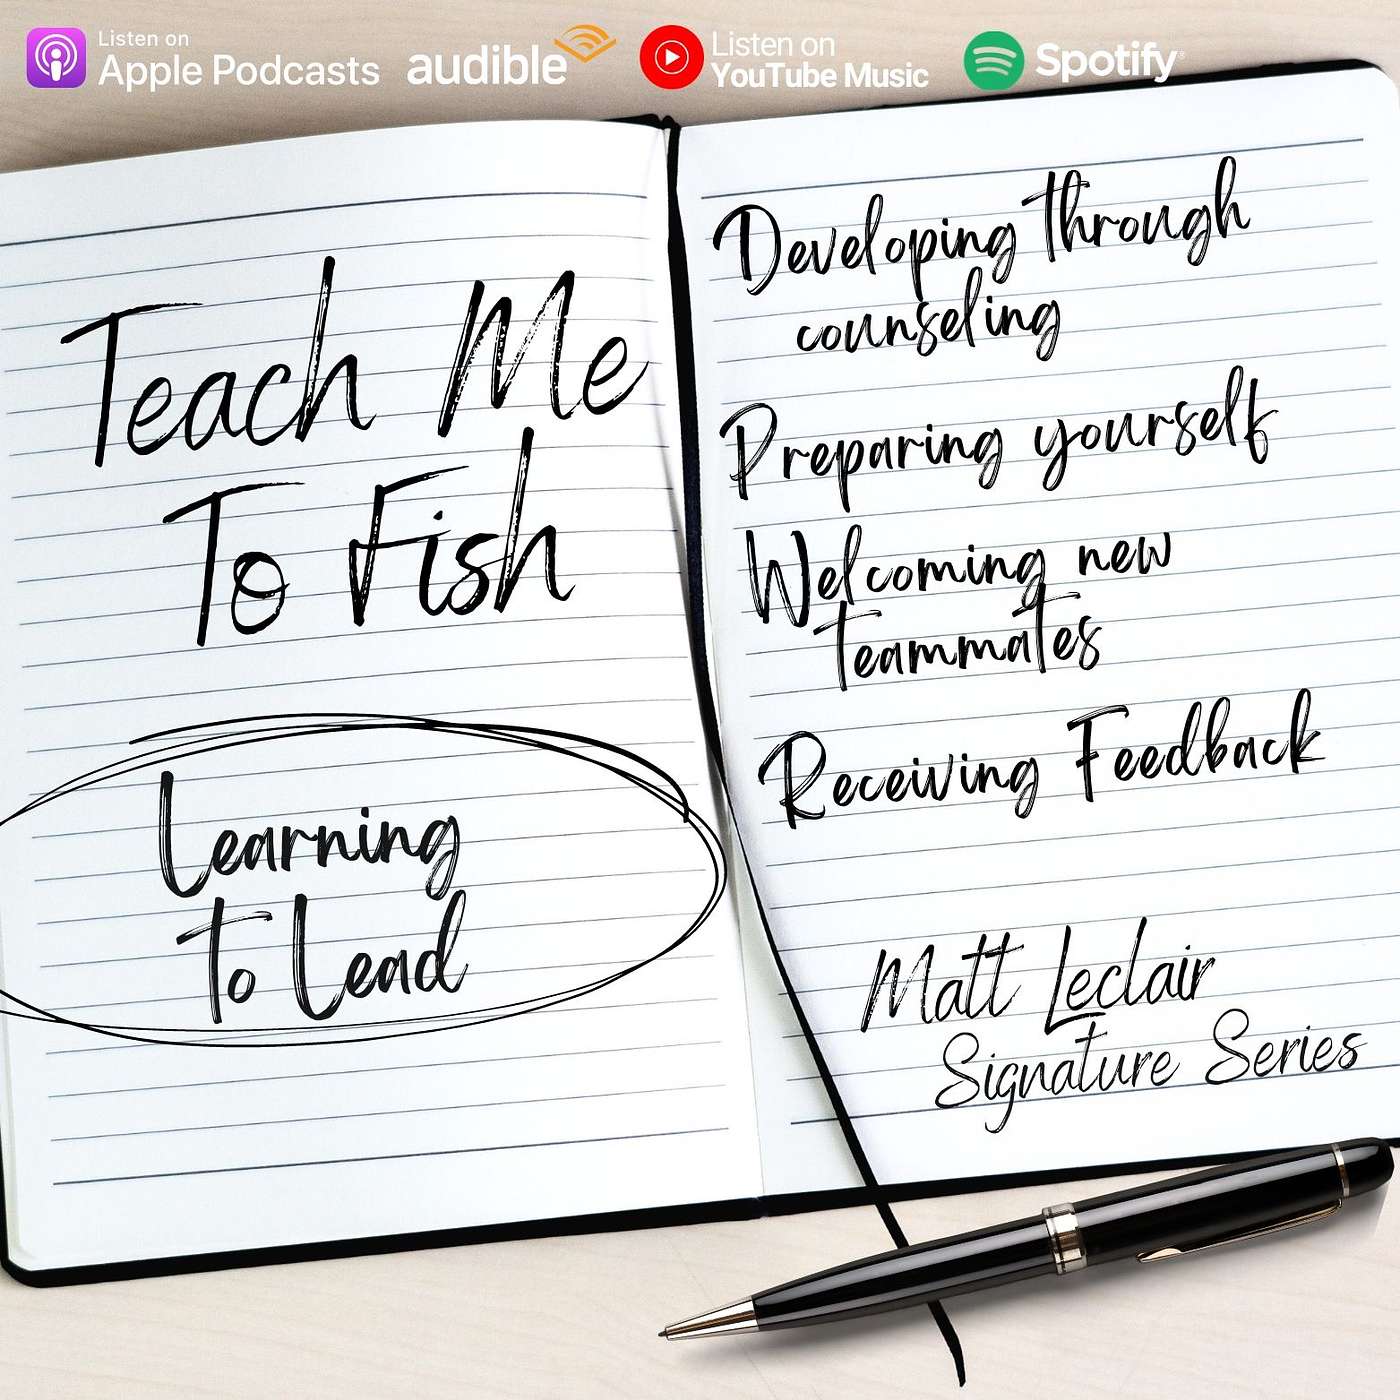 Listen on
Apple Podcasts
audible
Listen on
YouTube Music
Spotify
Teach Me
To Fish
Learning
To Lead
Developing through
counseling
Preparing yourself
Welcoming new
teammates
Receiving Feedback
Matt Leclair
Signature Series